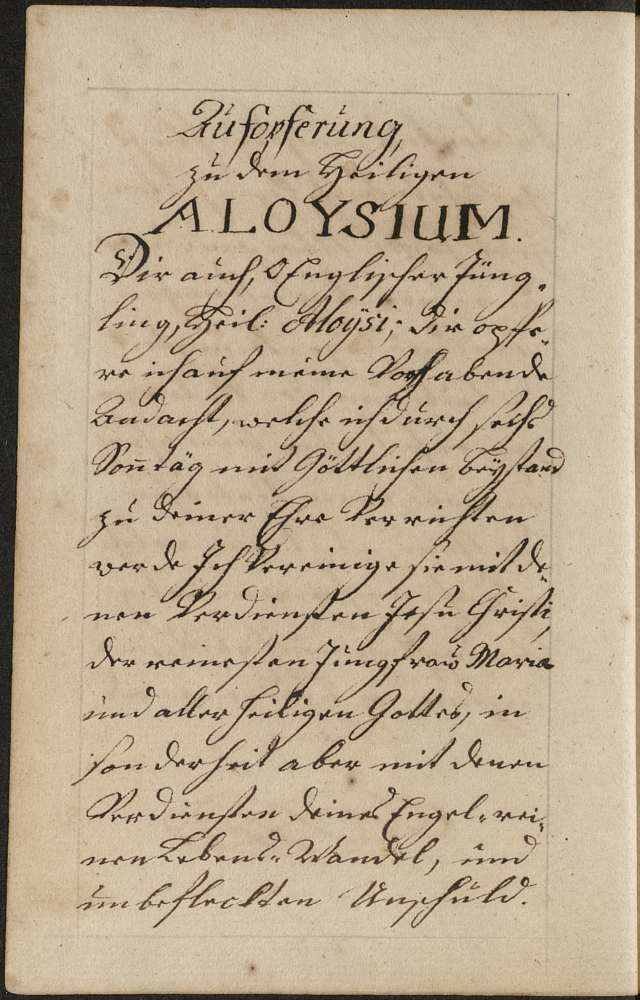 Aufopferung,
zu dem Heiligen
ALOYSIUM.
Dir auch, O Englischer Jüng-
ling, Heil: Aloÿsi; dir opfe-
re ich auf meine Vorhabende
Andacht, welche ich durch sechs
Son̄täg mit Göttlichen beÿstand
zu deiner Ehre Verrichten
werde Ich Vereinige sie mit de-
nen Verdiensten Jesu Christi,
der reinesten Jungfrau Maria
und aller heiligen Gottes, in
sonderheit aber mit denen
Verdiensten deines Engel-rei-
nen Lebens-Wandel, und
unbefleckten Unschuld.